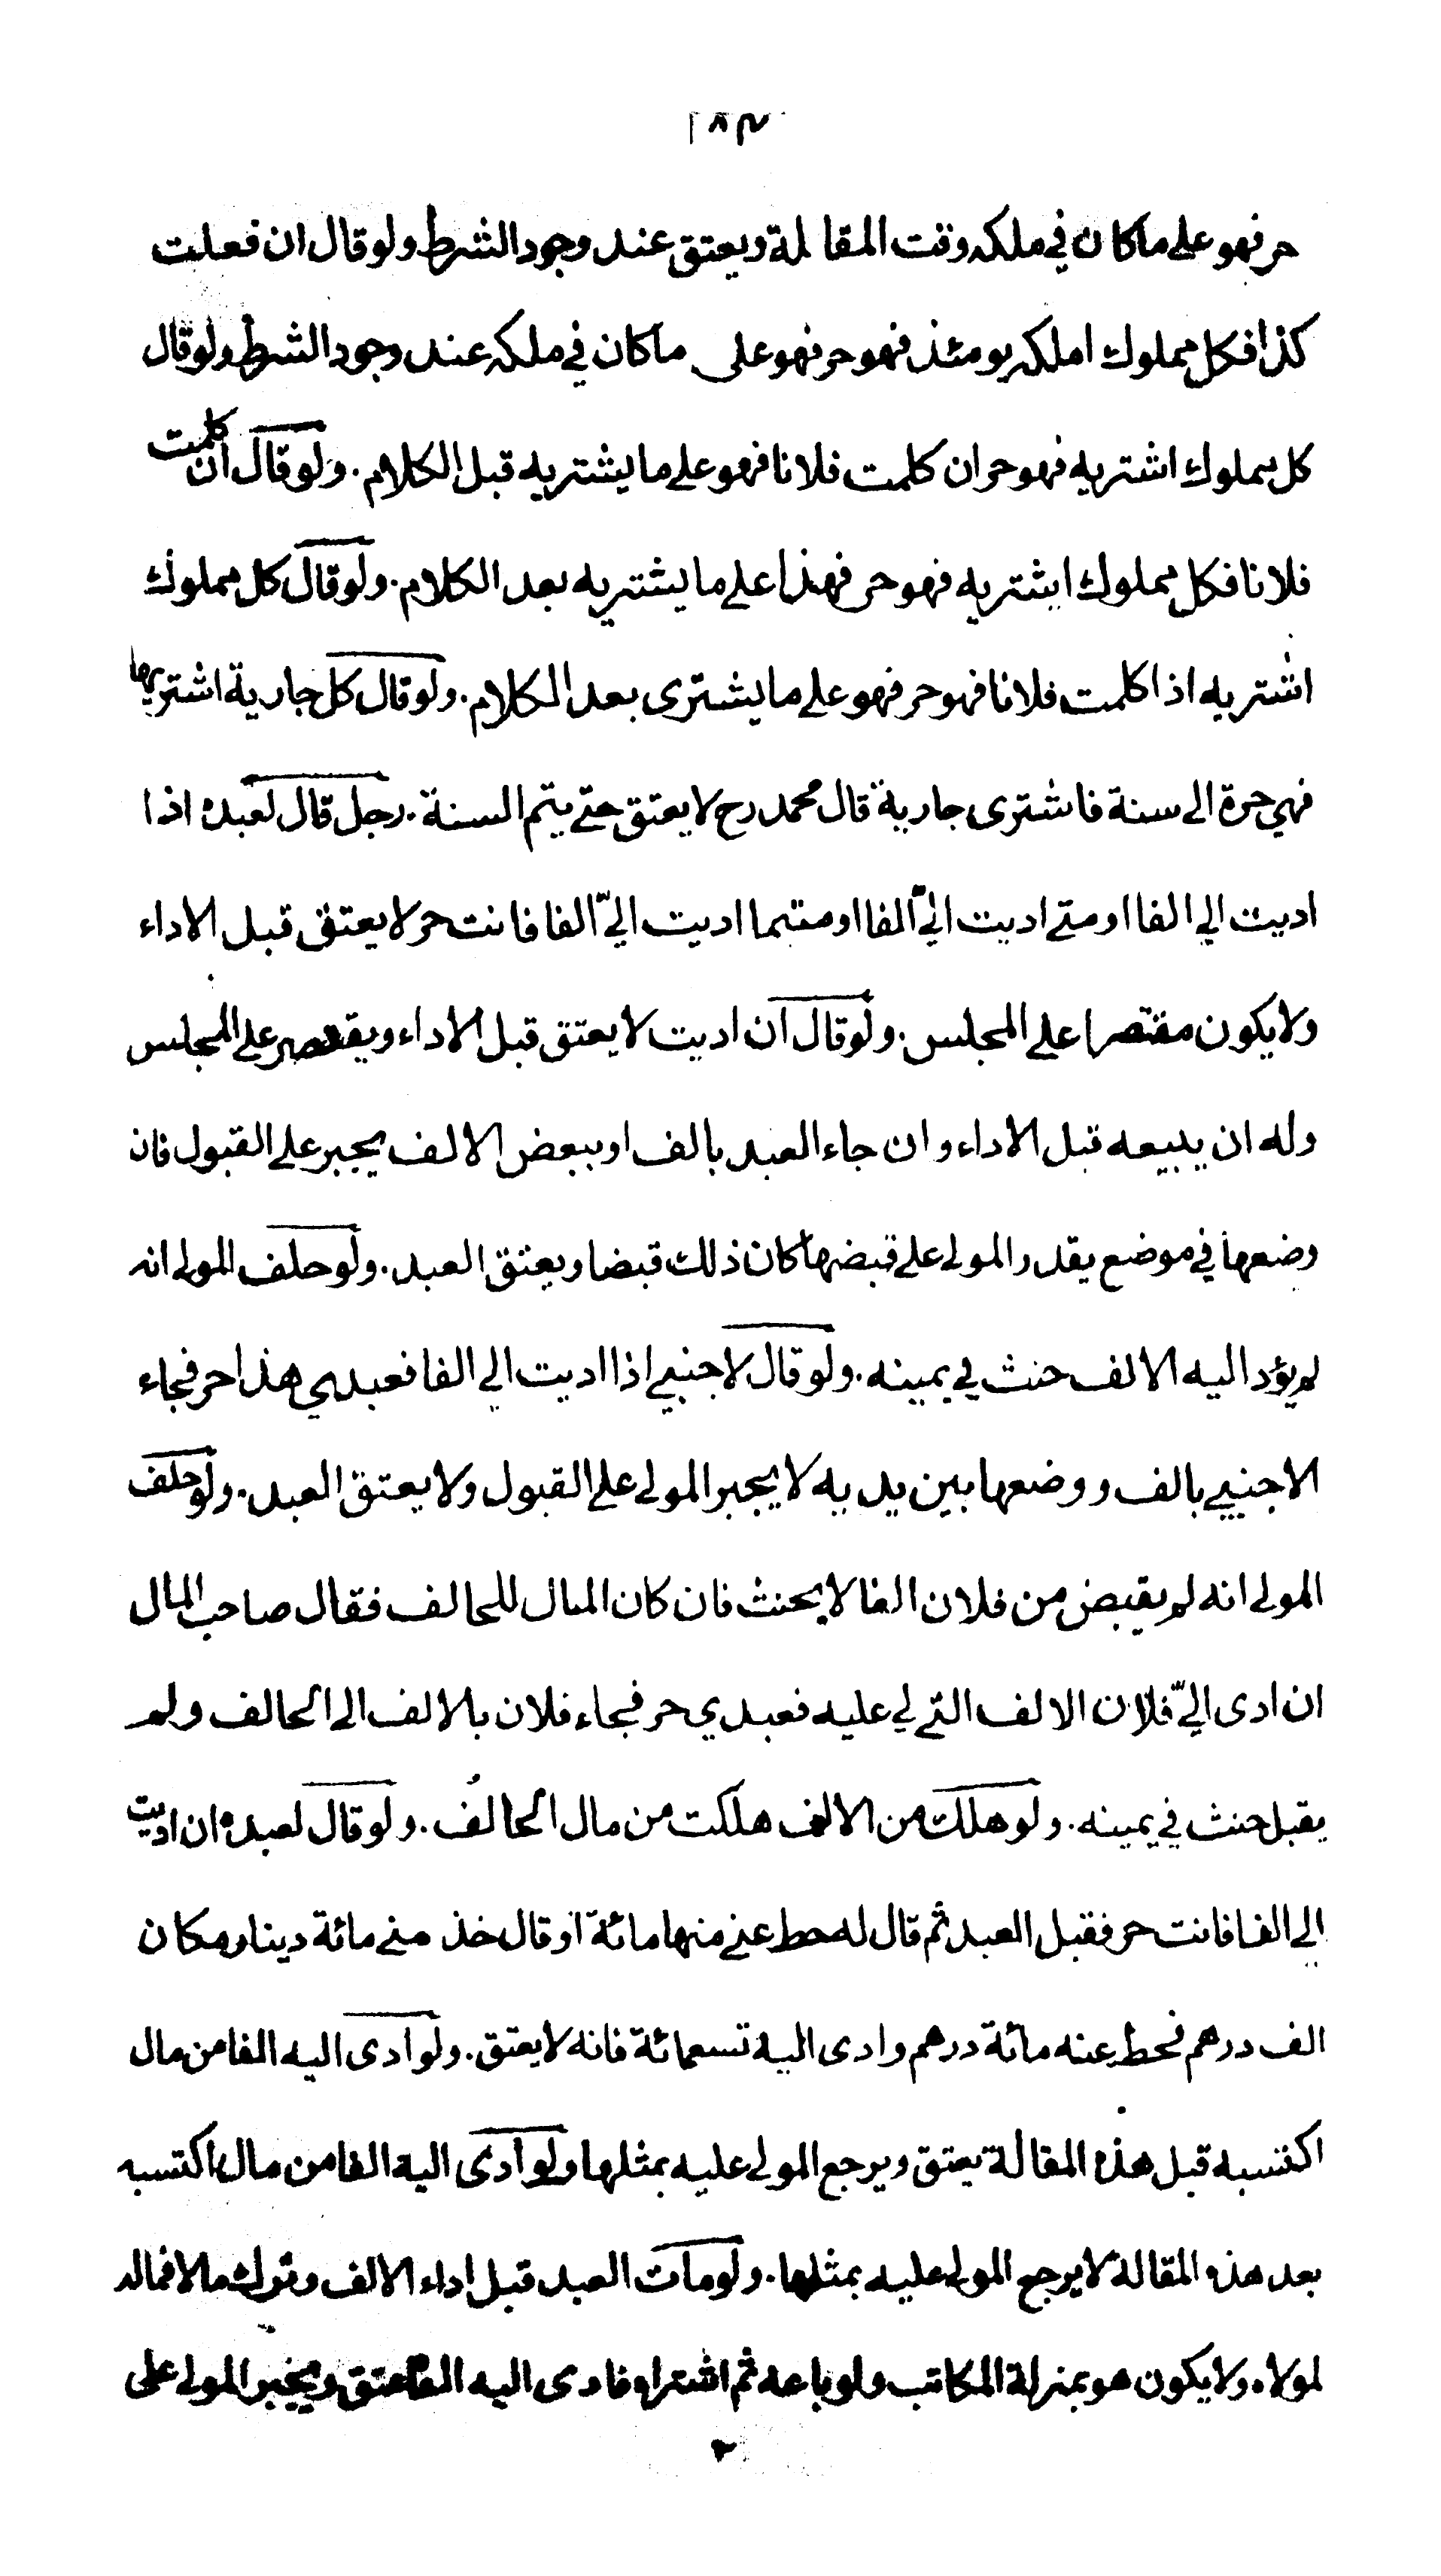 ١٨٣
حر فهو على ما كان في ملكه وقت المقالة ويعتق عند وجود الشرط ولو قال ان فعلت
كذا فكل مملوك املكه يومئذ فهو حر فهو على ما كان في ملكه عند وجود الشرط ولو قال
كل مملوك اشتريه فهو حر ان كلمت فلانا فهو على ما يشتريه قبل الكلام . ولو قال ان كلمت
فلانا فكل مملوك اشتريه فهو حر فهذا على ما يشتريه بعد الكلام . ولو قال كل مملوك
اشتريه اذا كلمت فلانا فهو حر فهو على ما يشترى بعد الكلام . ولو قال كل جارية اشتريها
فهي حرة الى سنة فاشترى جارية قال محمد رح لا يعتق حتى يتم السنة . رجل قال لعبده اذا
اديت الي الفا او متى اديت اليّ الفا او متىما اديت اليّ الفا فانت حر لا يعتق قبل الاداء
ولا يكون مقتصرا على المجلس . ولو قال ان اديت لا يعتق قبل الاداء ويقتصر على المجلس
وله ان يبيعه قبل الاداء وان جاء العبد بالف او ببعض الالف يجبر على القبول فان
وضعها في موضع يقدر المولى على قبضها كان ذلك قبضا ويعتق العبد . ولو حلف المولى انه
لم يؤد اليه الالف حنث في يمينه . ولو قال لاجنبي اذا اديت الي الفا فعبدي هذا حر فجاء
الاجنبي بالف ووضعها بين يديه لا يجبر المولى على القبول ولا يعتق العبد . ولو حلف
المولى انه لم يقبض من فلان الفا لا يحنث فان كان المال للحالف فقال صاحب المال
ان ادى اليّ فلان الالف التي لي عليه فعبدي حر فجاء فلان بالالف الى الحالف ولم
يقبل حنث في يمينه . ولو هلكت من الالف هلكت من مال الحالف . ولو قال لعبده ان اديت
الي الفا فانت حر فقبل العبد ثم قال له حط عني منها مائة او قال خذ مني مائة دينار مكان
الف درهم فحط عنه مائة درهم وادى اليه تسعمائة فانه لا يعتق . ولو ادى اليه الفا من مال
اكتسبه قبل هذه المقالة يعتق ويرجع المولى عليه بمثلها ولو ادى اليه الفا من مال اكتسبه
بعد هذه المقالة لا يرجع المولى عليه بمثلها . ولو مات العبد قبل اداء الالف وترك مالا فماله
لمولاه ولا يكون هو بمنزلة المكاتب ولو باعه ثم اشتراه فادى اليه الفا عتق ويجبر المولى على